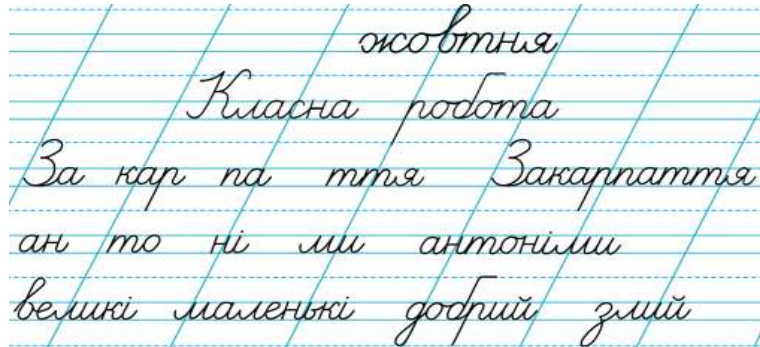 жовтня
Класна робота
За кар па ття Закарпаття
ан то ні ми антоніми
великі маленькі добрий злий